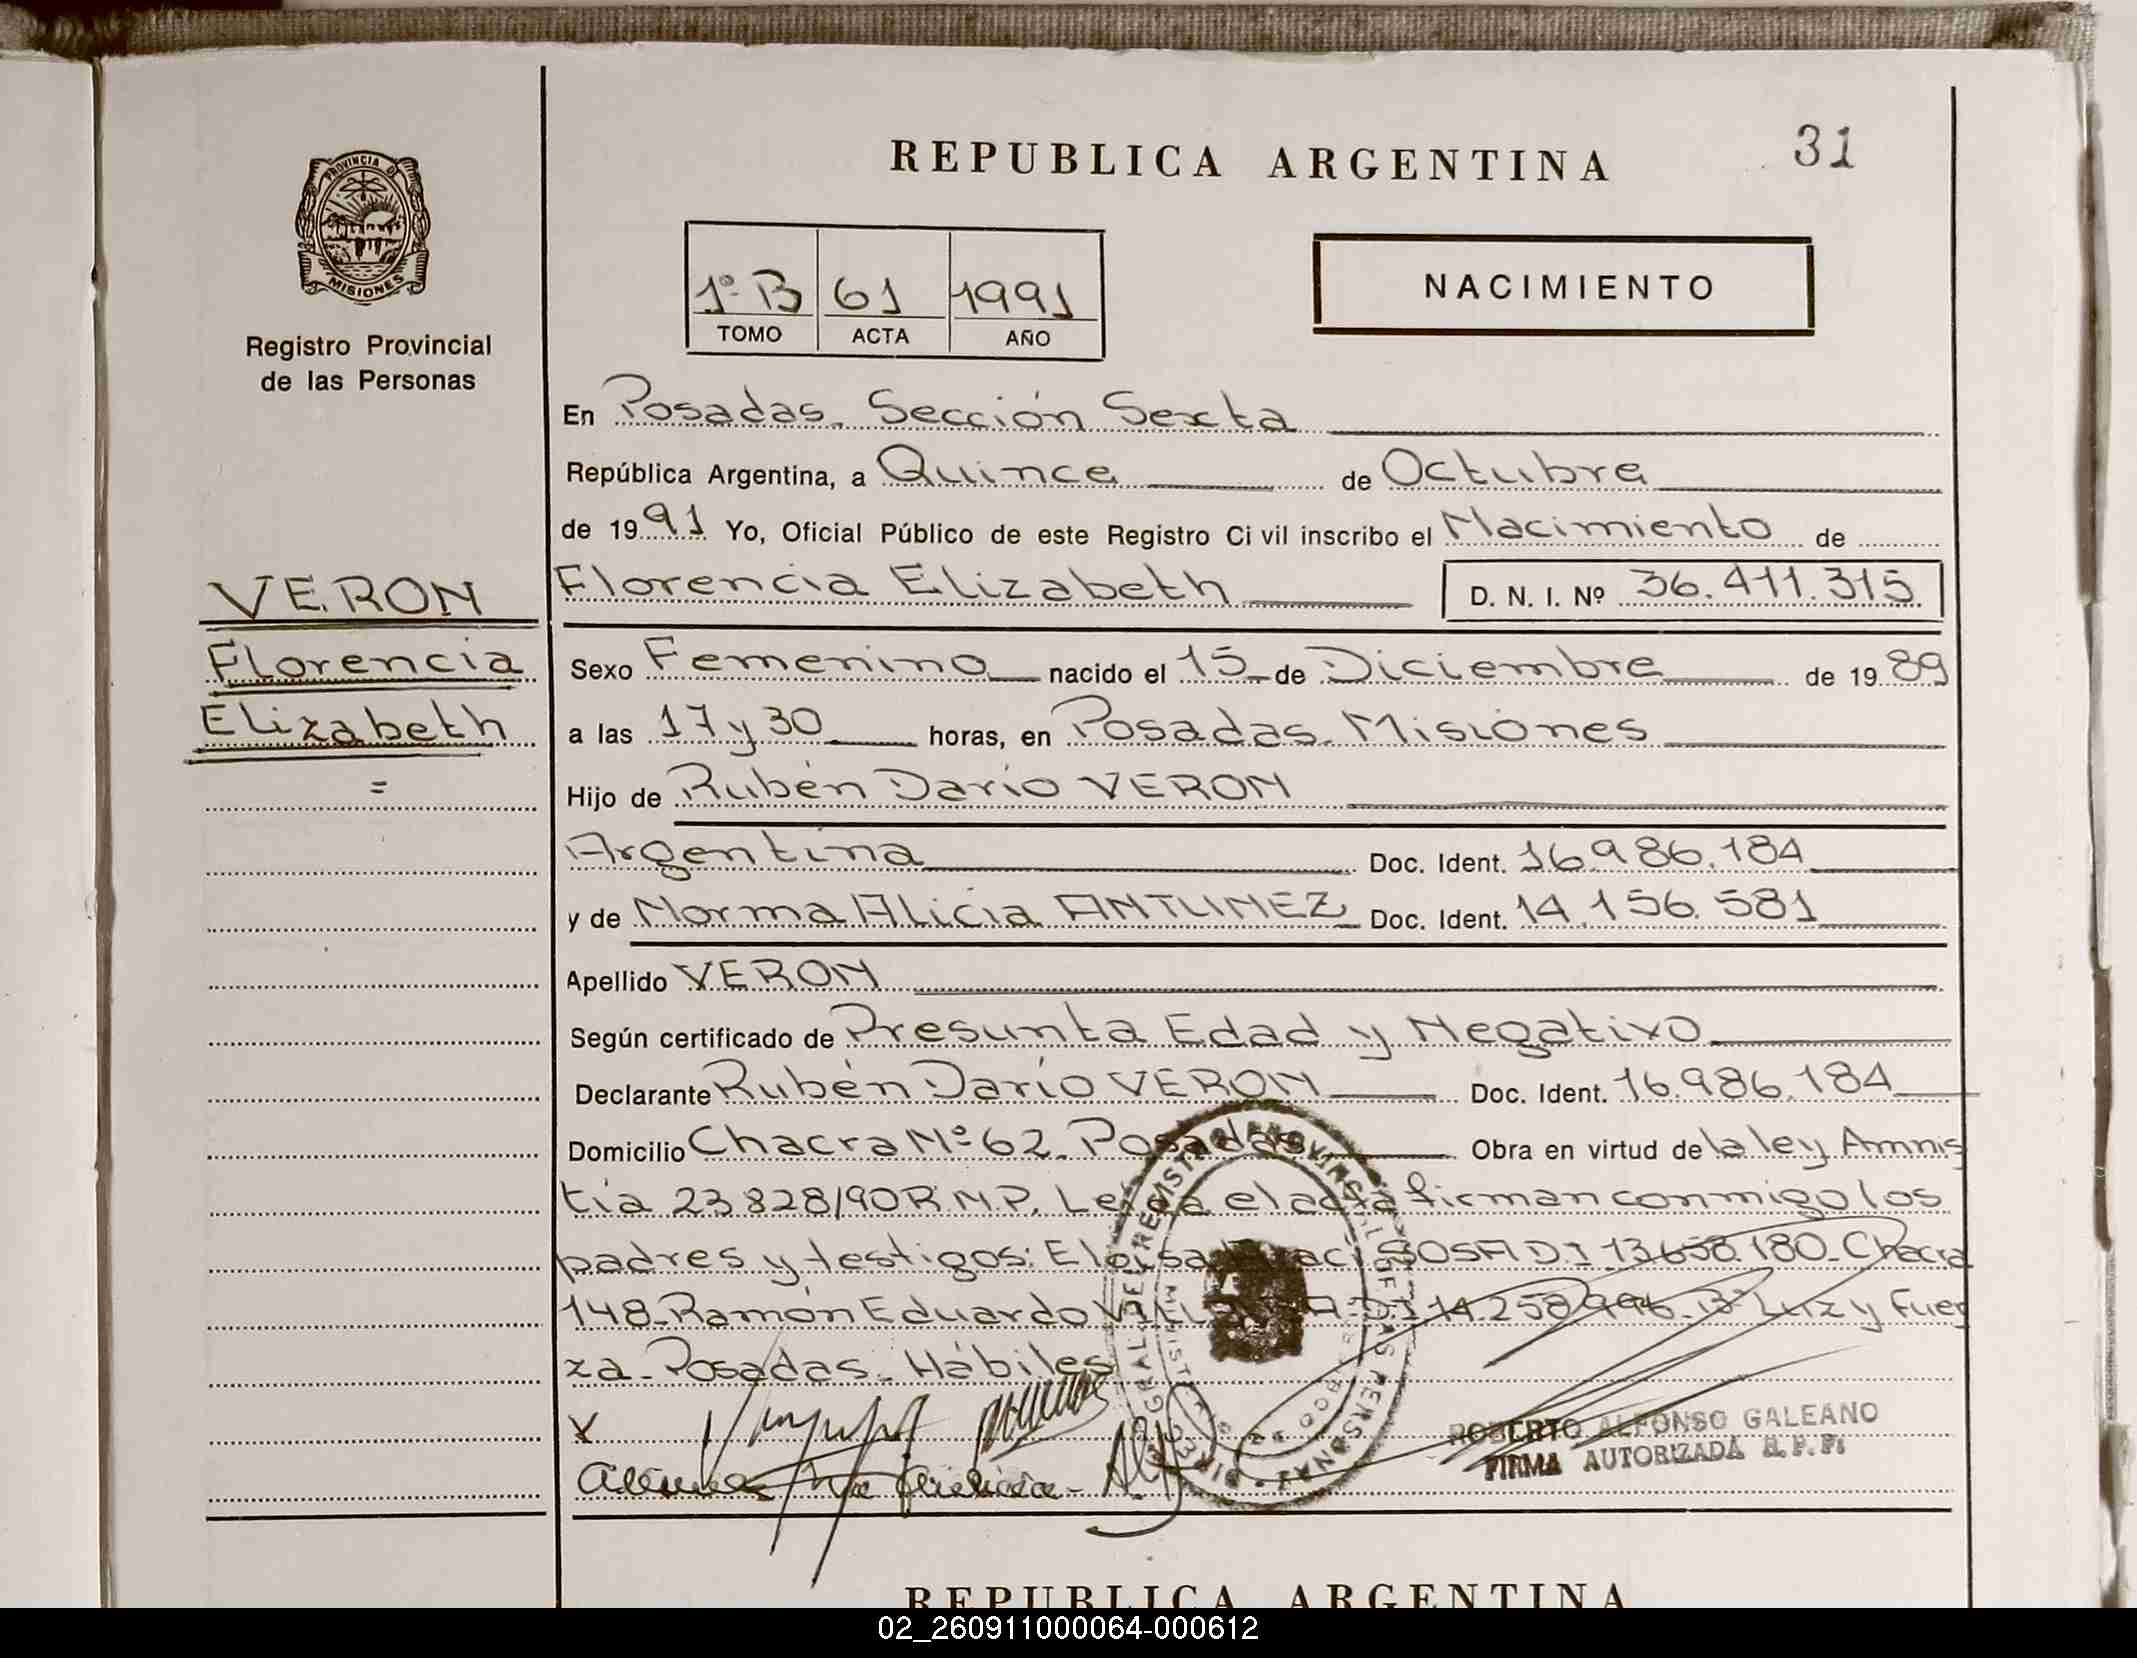 REPUBLICA ARGENTINA
31
PROVINCIA DE
MISIONES
Registro Provincial
de las Personas
1º B 61 1991
TOMO ACTA AÑO
NACIMIENTO
En Posadas. Sección Sexta
República Argentina, a Quince de Octubre
de 1991 Yo, Oficial Público de este Registro Civil inscribo el Nacimiento de
VERON
Florencia
Elizabeth
=
Florencia Elizabeth D. N. I. Nº 36.411.315
Sexo Femenino nacido el 15 de Diciembre de 1989
a las 17 y 30 horas, en Posadas. Misiones
Hijo de Rubén Darío VERON
Argentina Doc. Ident. 16.986.184
y de Norma Alicia ANTUNEZ Doc. Ident. 14.156.581
Apellido VERON
Según certificado de Presunta Edad y Negativo
Declarante Rubén Darío VERON Doc. Ident. 16.986.184
Domicilio Chacra Nº 62. Posadas Obra en virtud de la ley Amnis
tía 23.828/90 R.N.P. Leída el acta firman conmigo los
padres y testigos: SOSA D.I 13.658.180 - Chacra
148 - Ramón Eduardo D.I 14.258.996 - Bº Luz y Fuer
za - Posadas. Hábiles
X
ROBERTO ALFONSO GALEANO
FIRMA AUTORIZADA R. P. P.
REPUBLICA ARGENTINA
02_260911000064-000612